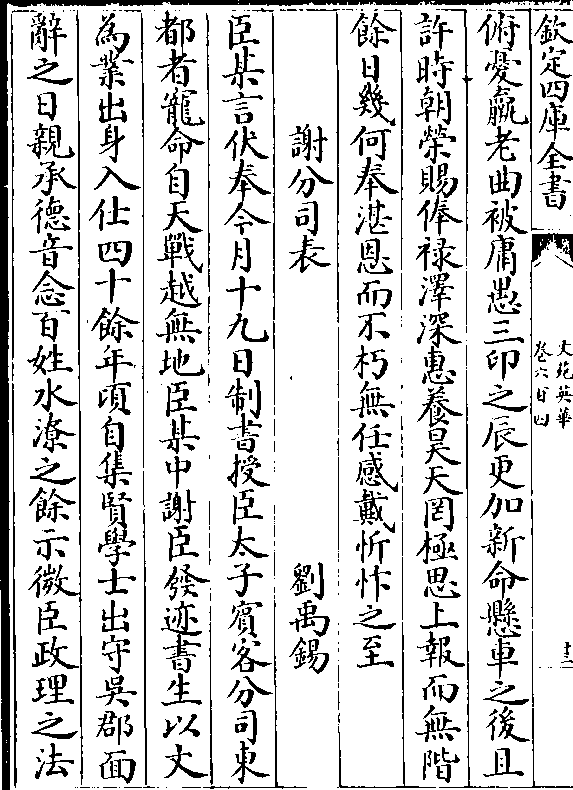 欽定四庫全書
文苑英華
卷六百四
十三
俯憂羸老曲被庸愚三印之辰更加新命懸車之後且
許時朝榮賜俸祿澤深惠養昊天罔極思上報而無階
餘日幾何奉湛恩而不朽無任感戴忻忭之至
謝分司表 劉禹錫
臣某言伏奉今月十九日制書授臣太子賓客分司東
都者寵命自天戰越無地臣某中謝臣發迹書生以文
為業出身入仕四十餘年頃自集賢學士出守吳郡面
辭之日親承德音念百姓水潦之餘示微臣政理之法